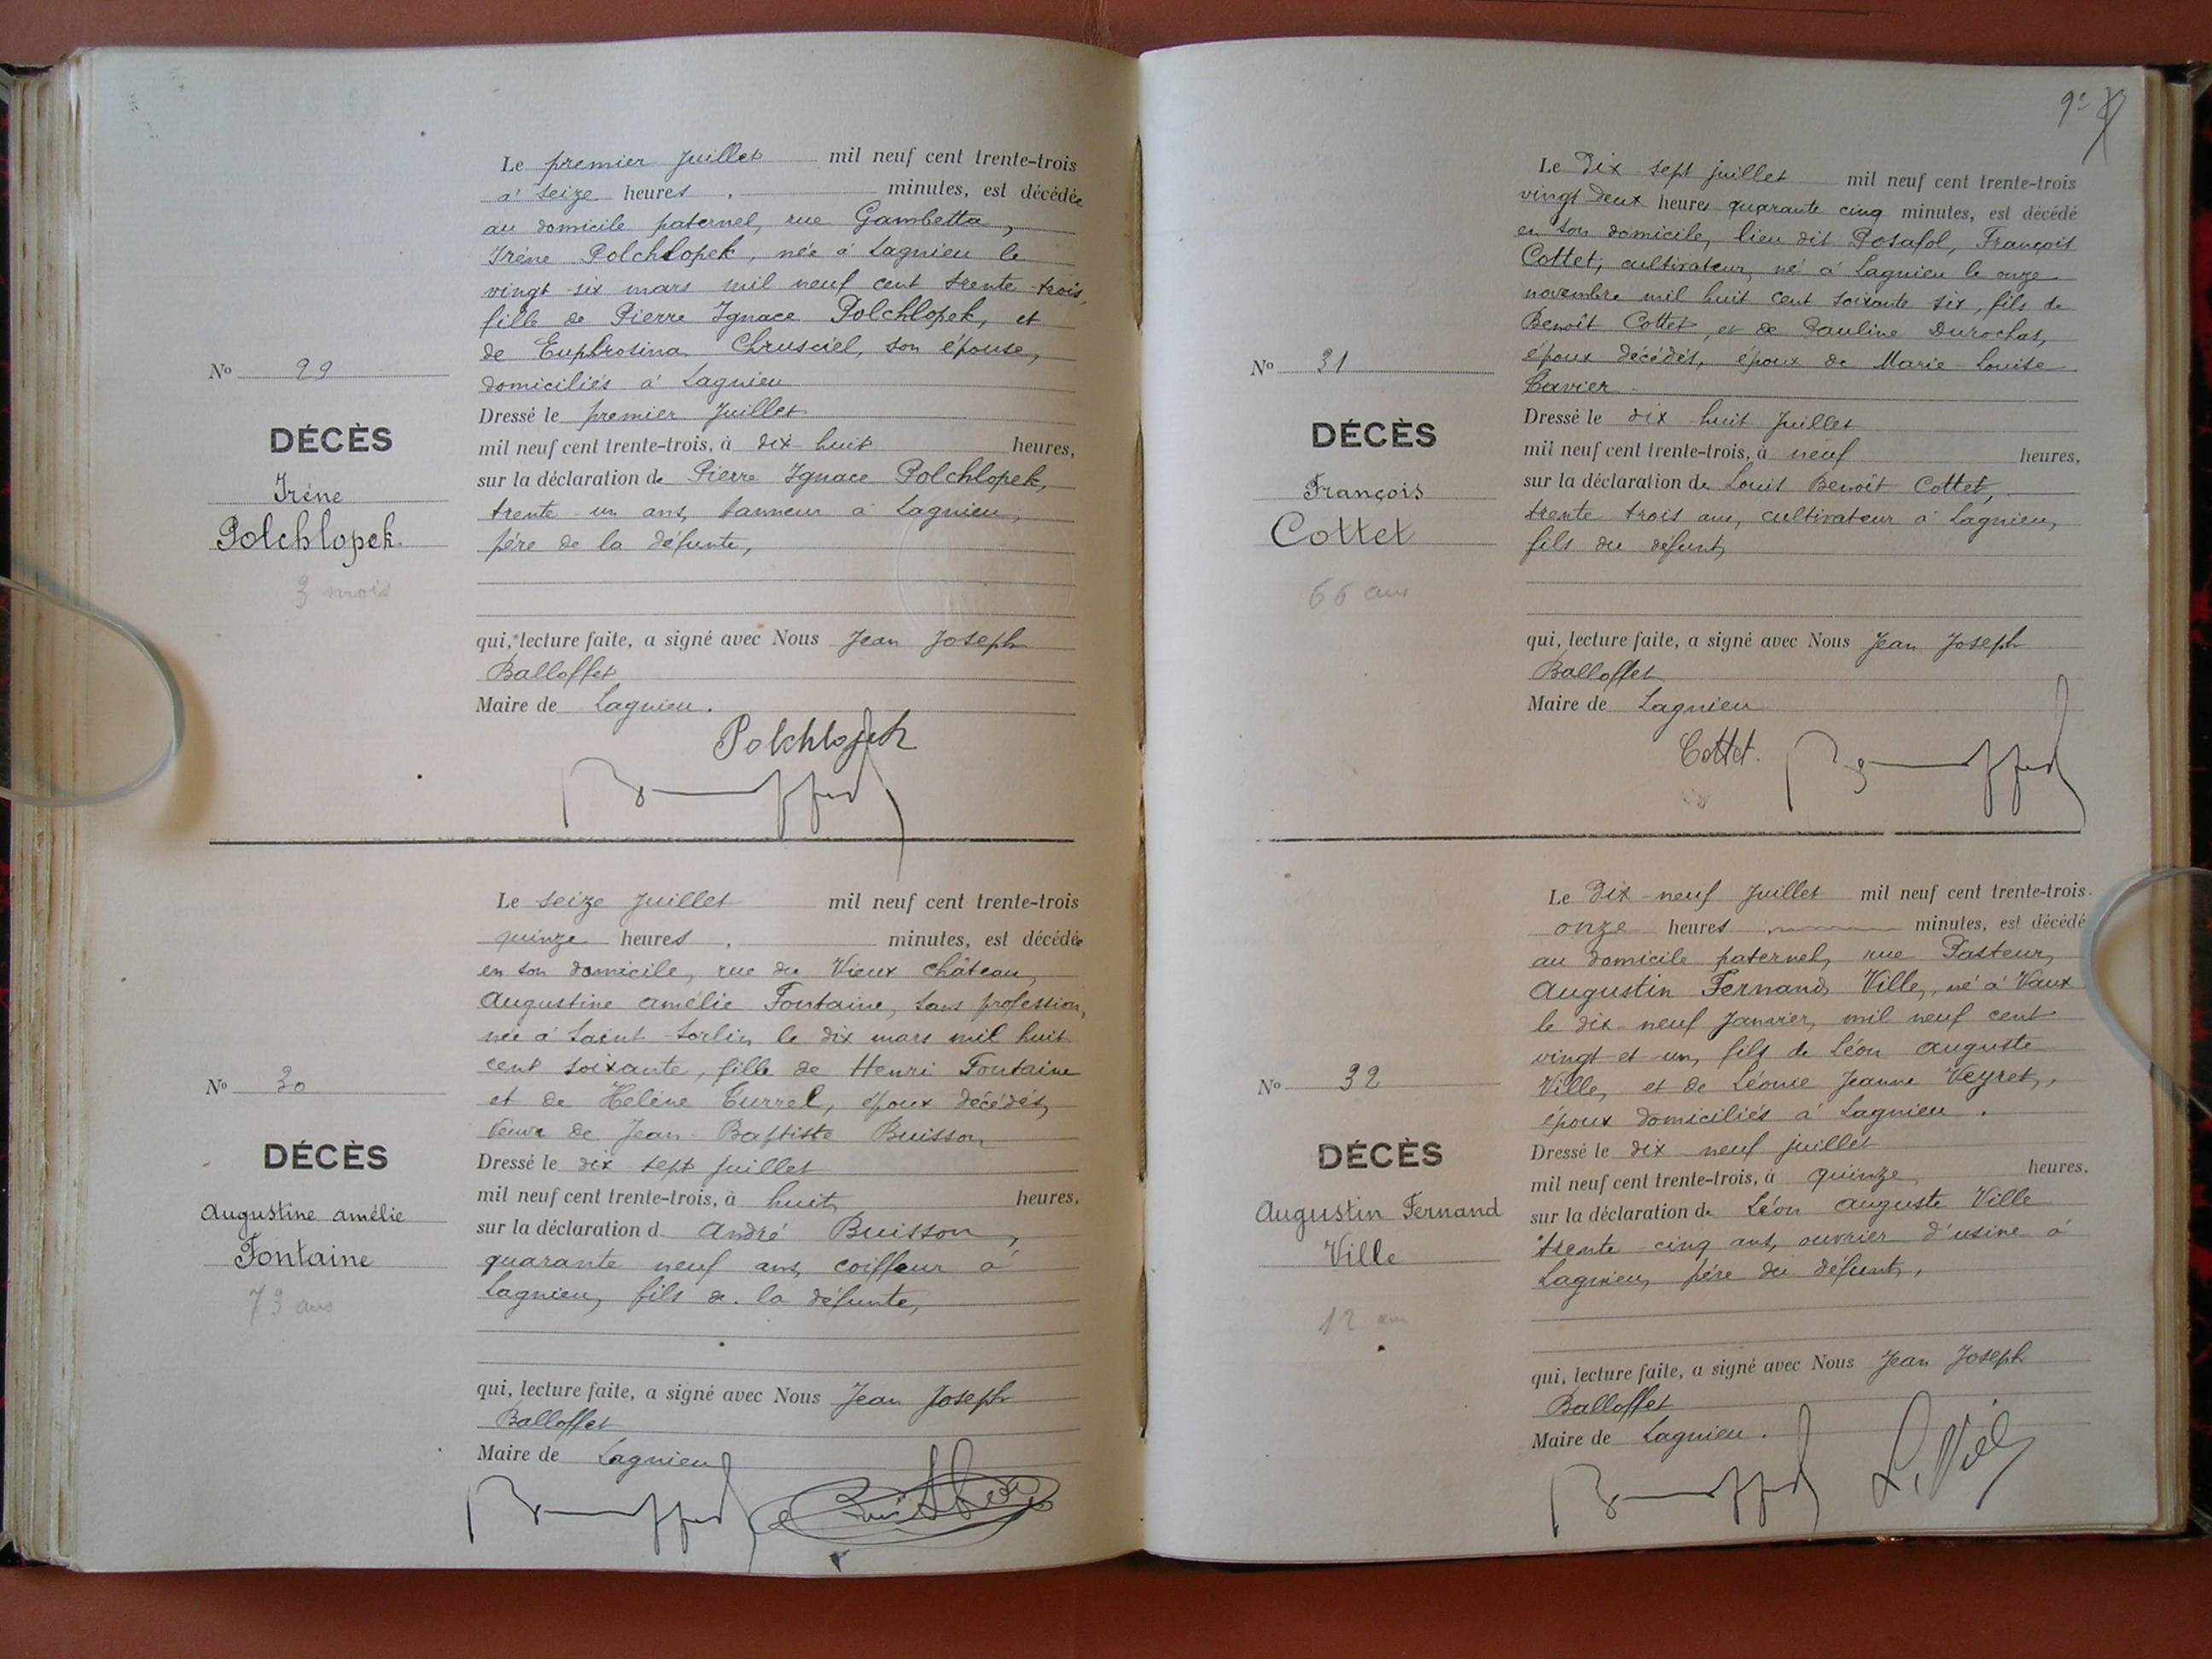 Le premier Juillet mil neuf cent trente-trois
à seize heures minutes, est décédée
au domicile paternel, rue Gambetta,
Irène Polchlopek, née à Lagnieu le
vingt-six mars mil neuf cent trente-trois,
fille de Pierre Ignace Polchlopek, et
de Euphrosina Chrusciel, son épouse,
domiciliés à Lagnieu
Dressé le premier Juillet
mil neuf cent trente-trois, à dix-huit heures,
sur la déclaration de Pierre Ignace Polchlopek,
trente-un ans, tanneur à Lagnieu,
père de la défunte,
qui, lecture faite, a signé avec Nous Jean Joseph
Balloffet
Maire de Lagnieu.
Polchlopek
No 29
DÉCÈS
Irène
Polchlopek
3 mois
Le seize Juillet mil neuf cent trente-trois
quinze heures, minutes, est décédée
en son domicile, rue du Vieux Château,
Augustine Amélie Fontaine, sans profession,
née à Saint-Sorlin le dix mars mil huit
cent soixante, fille de Henri Fontaine
et de Hélène Turrel, époux décédés,
veuve de Jean-Baptiste Buisson
Dressé le dix sept Juillet
mil neuf cent trente-trois, à huit heures,
sur la déclaration d André Buisson,
quarante neuf ans, coiffeur à
Lagnieu, fils de la défunte,
qui, lecture faite, a signé avec Nous Jean Joseph
Balloffet
Maire de Lagnieu
No 30
DÉCÈS
Augustine Amélie
Fontaine
73 ans
Le Dix sept juillet mil neuf cent trente-trois
vingt deux heures quarante cinq minutes, est décédé
en son domicile, lieu dit Posafol, François
Cottet, cultivateur, né à Lagnieu le onze
novembre mil huit cent soixante six, fils de
Benoît Cottet, et de Pauline Durochas,
époux décédés, époux de Marie-Louise
Tavier
Dressé le dix-huit Juillet
mil neuf cent trente-trois, à neuf heures,
sur la déclaration de Louis Benoît Cottet,
trente trois ans, cultivateur à Lagnieu,
fils du défunt,
qui, lecture faite, a signé avec Nous Jean Joseph
Balloffet
Maire de Lagnieu
Cottet.
No 31
DÉCÈS
François
Cottet
66 ans
Le Dix-neuf Juillet mil neuf cent trente-trois
onze heures minutes, est décédé
au domicile paternel, rue Pasteur,
Augustin Fernand Ville, né à Vaux
le dix-neuf Janvier, mil neuf cent
vingt et un, fils de Léon Auguste
Ville, et de Léonie Jeanne Veyret,
époux domiciliés à Lagnieu.
Dressé le dix neuf juillet
mil neuf cent trente-trois, à quinze heures,
sur la déclaration de Léon Auguste Ville
trente-cinq ans, ouvrier d'usine à
Lagnieu, père du défunt,
qui, lecture faite, a signé avec Nous Jean Joseph
Balloffet
Maire de Lagnieu.
L. Ville
No 32
DÉCÈS
Augustin Fernand
Ville
12 ans